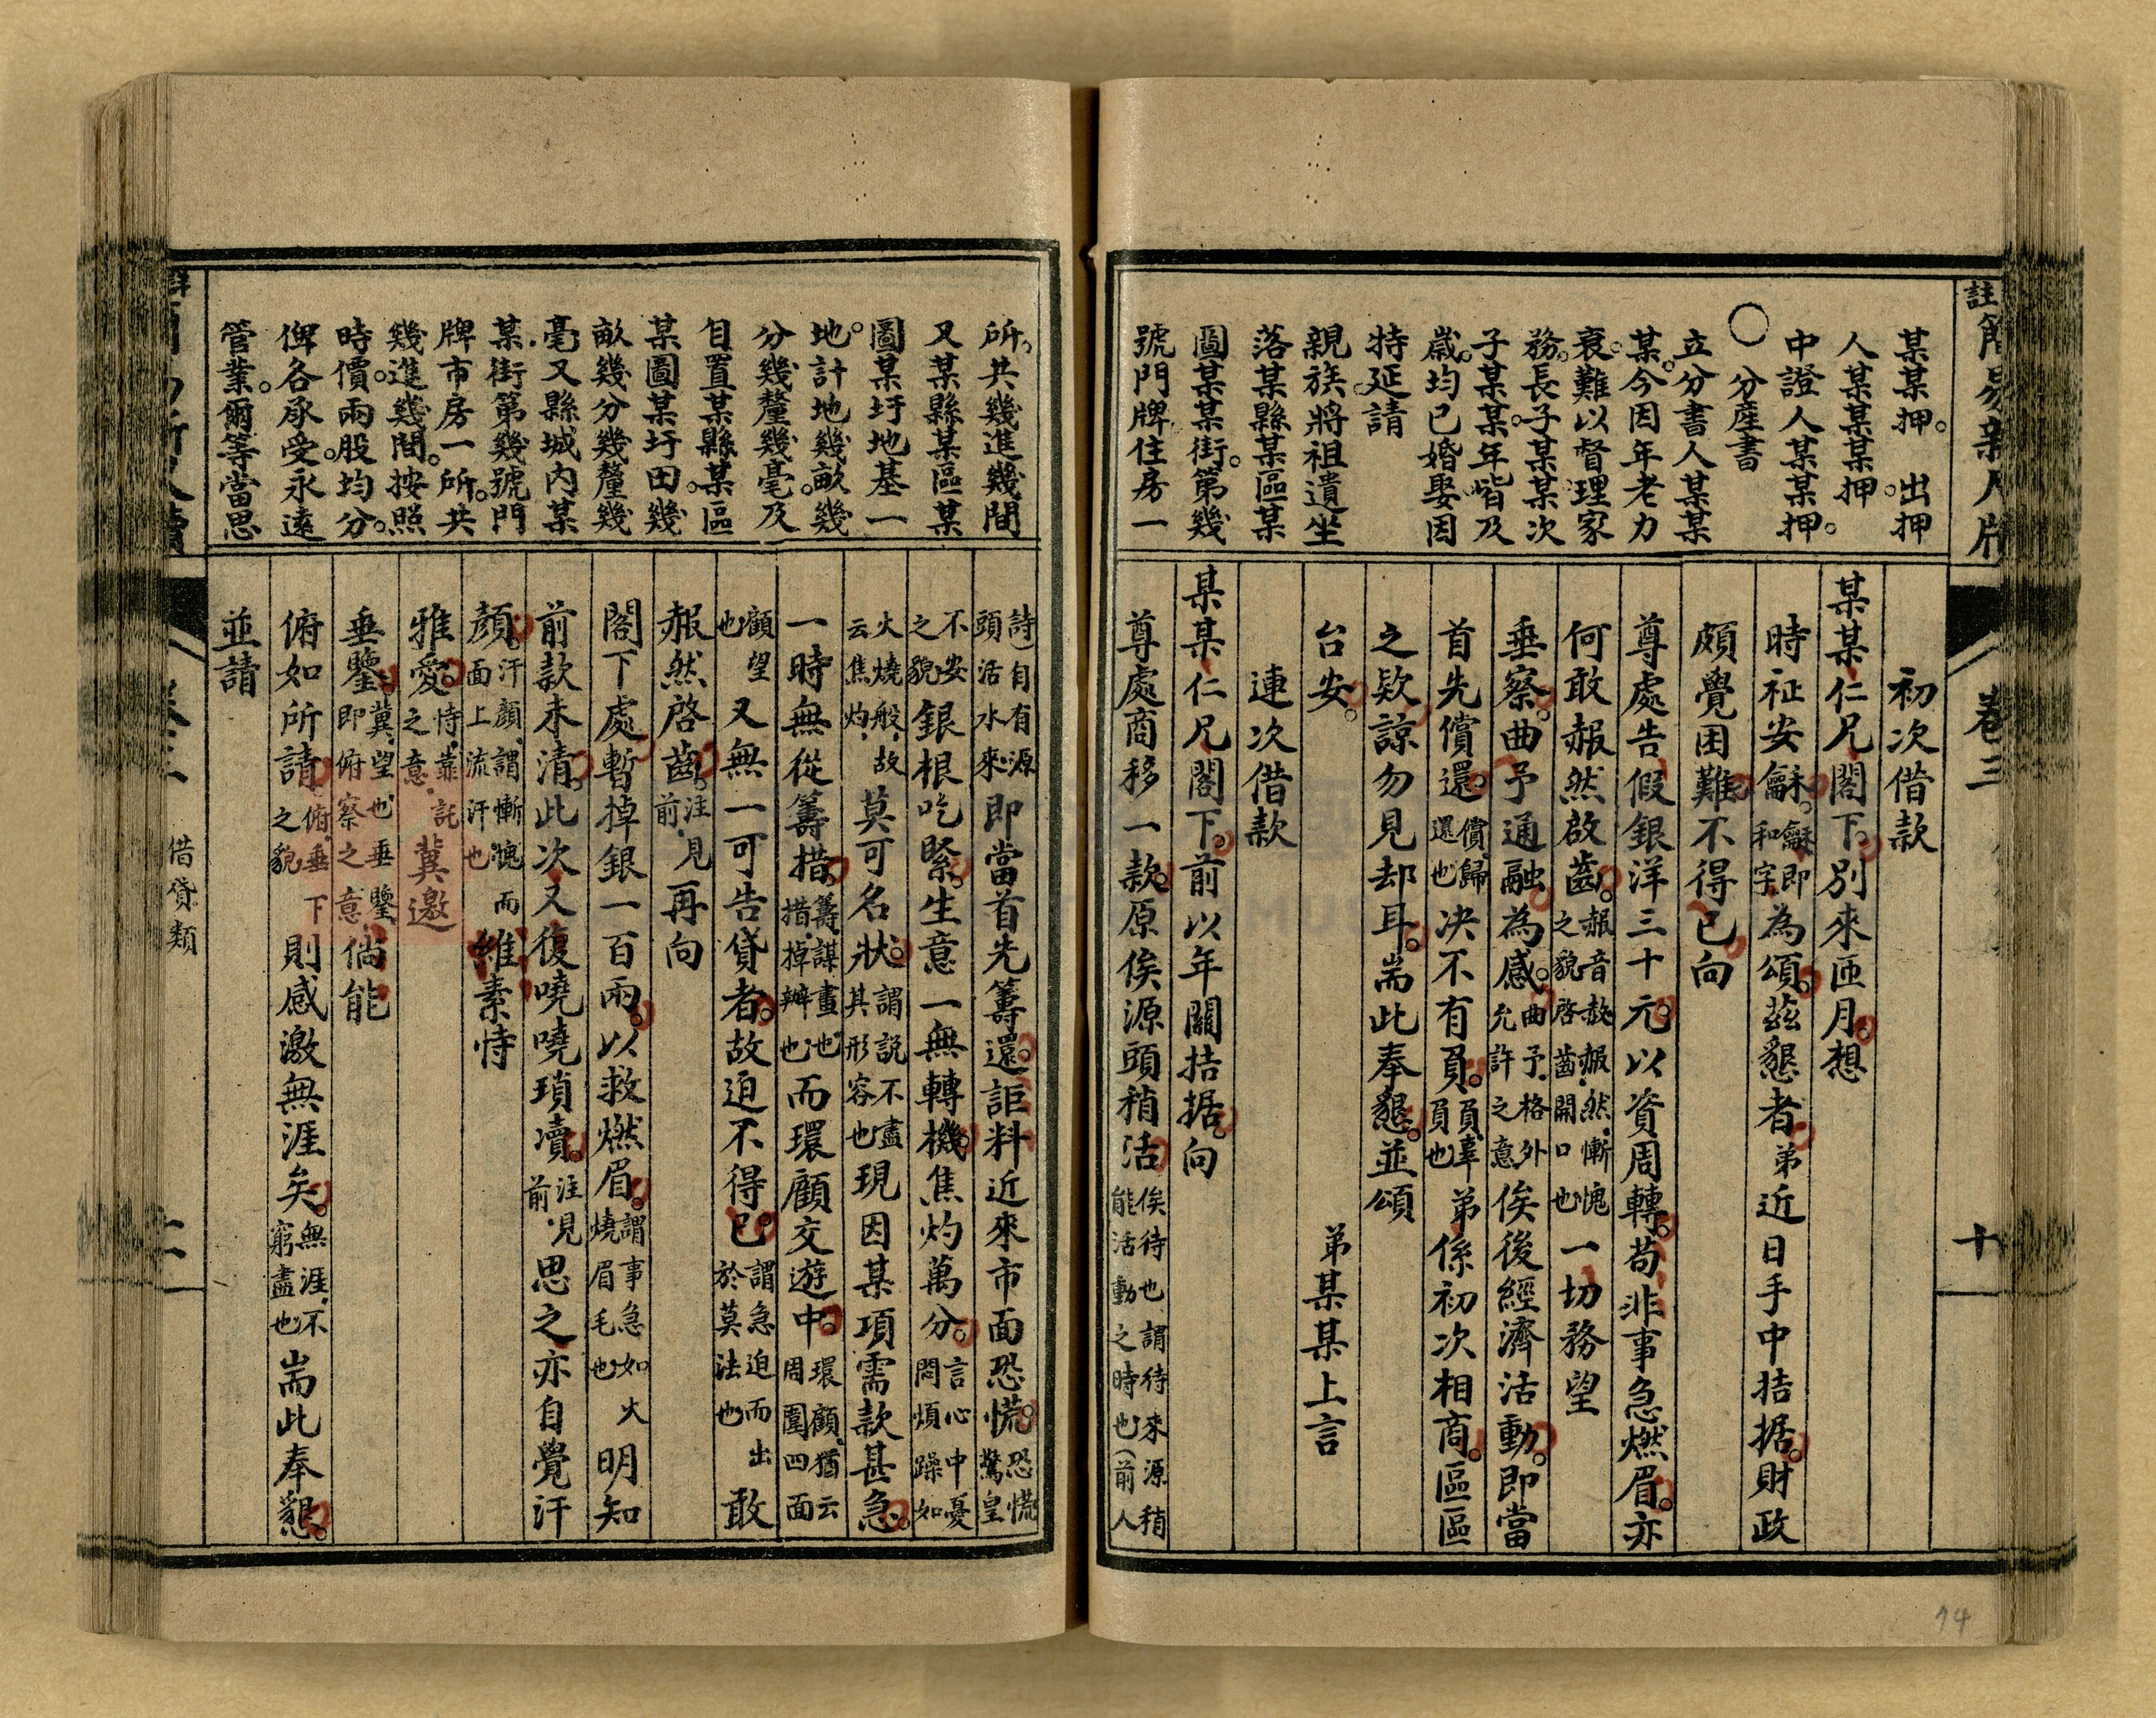 某某押。 出押
人某某某押。
中證人某某押。
○ 分產書
立分書人某某
某。今因年老力
衰。難以督理家
務。長子某某次
子某某。年皆及
歲。均已婚娶因
特延請
親族。將祖遺坐
落某縣某區某
圖某某街。第幾
號門牌住房一
初次借款
某某仁兄閣下。別來匝月。想
時祉安龢。龢即和字。為頌。茲懇者。弟近日手中拮据。財政
頗覺困難。不得已向
尊處告假銀洋三十元。以資周轉。苟非事急燃眉。亦
何敢赧然啟齒。赧音赦赧然慚愧之貌啓齒開口也一切務望
垂察。曲予通融為感。曲予格外允許之意俟後經濟活動。即當
首先償還。償歸還也決不有負。負辜負也弟係初次相商。區區
之欵。諒勿見却耳。耑此奉懇。並頌
台安。 弟某某上言
連次借款
某某仁兄閣下。前以年關拮据。向
尊處商移一款。原俟源頭稍活俟待也謂待來源稍能活動之時也(前人
卷三
十
所。共幾進幾間
又某縣某區某
圖某圩地基一
地。計地幾畝幾
分幾釐幾毫。及
自置某縣某區
某圖某圩田。幾
畝幾分幾釐幾
毫又縣城內某
某街第幾號門
牌市房一所。共
幾進幾間。按照
時價。兩股均分。
俾各承受。永遠
管業。爾等當思
詩)自有源頭活水來即當首先籌還。詎料近來市面恐慌。恐慌驚皇
不安之貌銀根吃緊。生意一無轉機焦灼萬分。言心中憂悶煩躁如
火燒般。故云焦灼莫可名狀。謂說不盡其形容也現因某項需款甚急。
一時無從籌措。籌謀畫也措掉辦也而環顧交遊中。環顧猶云周圍四面
顧望也又無一可告貸者。故迫不得已。謂急迫而出於莫法也敢
赧然啓齒。注見前再向
閣下處暫掉銀一百兩。以救燃眉。謂事急如火燒眉毛也明知
前款未清。此次又復嘵嘵瑣凟。注見前思之亦自覺汗
顏。汗顏謂慚愧而面上流汗也維素恃
雅愛。恃靠託之意冀邀
垂鑒。冀望也垂鑒即俯察之意倘能
俯如所請。俯垂下之貌則感激無涯矣。無涯不窮盡也耑此奉懇。
並請
借貸類
14